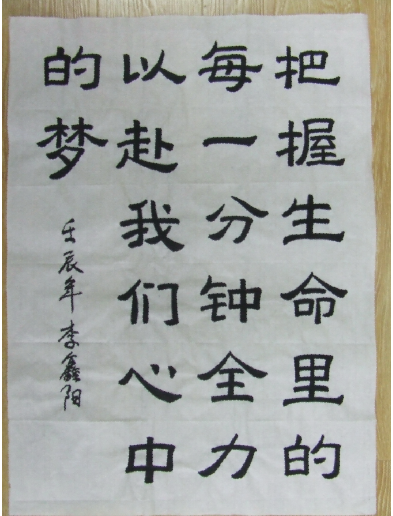 把握生命里的
每一分钟全力
以赴我们心中
的梦
壬辰年李鑫阳